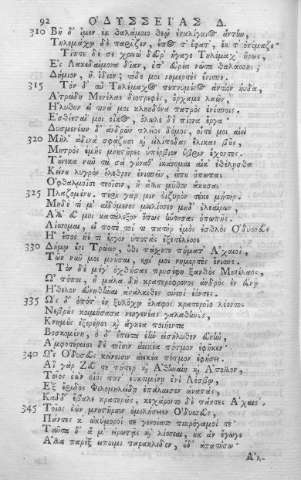 92 ὈΔΥΣΣΕΙΑΣ Δ.
310 Βῆ δ' ἴμεν ἐκ θαλάμοιο θεῷ ἐναλίγκιος ἄντην,
Τηλεμάχῳ δὲ παρῖζεν, ἔπος τ' ἔφατ', ἔκ τ' ὀνόμαζε·
Τίπτε δέ σε χρειὼ δεῦρ' ἤγαγε Τηλέμαχ' ἥρως,
Ἐς Λακεδαίμονα δῖαν, ἐπ' εὐρέα νῶτα θαλάσσης;
Δήμιον, ἢ ἴδιον; τόδε μοι νημερτὲς ἔνισπε.
315 Τὸν δ' αὖ Τηλέμαχος πεπνυμένος ἀντίον ηὔδα,
Ἀτρείδη Μενέλαε διοτρεφὲς, ὄρχαμε λαῶν,
Ἤλυθον εἴ τινά μοι κληηδόνα πατρὸς ἐνίσποις.
Ἐσθίεταί μοι οἶκος, ὄλωλε δὲ πίονα ἔργα·
Δυσμενέων δ' ἀνδρῶν πλεῖος δόμος, οἵτε μοι αἰεὶ
320 Μῆλ' ἁδινὰ σφάζουσι καὶ εἰλίποδας ἕλικας βοῦς,
Μητρὸς ἐμῆς μνηστῆρες ὑπέρβιον ὕβριν ἔχοντες.
Τούνεκα νῦν τὰ σὰ γούναθ' ἱκάνομαι αἴκ' ἐθέλῃσθα
Κείνου λυγρὸν ὄλεθρον ἐνισπεῖν, εἴπου ὄπωπας
Ὀφθαλμοῖσι τεοῖσιν, ἢ ἄλλου μῦθον ἄκουσας
325 Πλαζομένου. περὶ γάρ μιν ὀϊζυρὸν τέκε μήτηρ.
Μηδέ τί μ' αἰδόμενος μειλίσσεο μηδ' ἐλεαίρων,
Ἀλλ' εὖ μοι κατάλεξον ὅπως ἤντησας ὀπωπῆς.
Λίσσομαι, εἴ ποτέ τοί τι πατὴρ ἐμὸς ἐσθλὸς Ὀδυσσεὺς
Ἢ ἔπος ἠέ τι ἔργον ὑποστὰς ἐξετέλεσσε
330 Δήμῳ ἔνι Τρώων, ὅθι πάσχετε πήματ' Ἀχαιοί,
Τῶν νῦν μοι μνῆσαι, καί μοι νημερτὲς ἔνισπε.
Τὸν δὲ μέγ' ὀχθήσας προσέφη ξανθὸς Μενέλαος,
Ὢ πόποι, ἦ μάλα δὴ κρατερόφρονος ἀνδρὸς ἐν εὐνῇ
Ἤθελον εὐνηθῆναι ἀνάλκιδες αὐτοὶ ἐόντες.
335 Ὡς δ' ὁπότ' ἐν ξυλόχῳ ἔλαφος κρατεροῖο λέοντος
Νεβροὺς κοιμήσασα νεηγενέας γαλαθηνοὺς,
Κνημοὺς ἐξερέῃσι καὶ ἄγκεα ποιήεντα
Βοσκομένη, ὁ δ' ἔπειτα ἑὴν εἰσήλυθεν εὐνὴν,
Ἀμφοτέροισι δὲ τοῖσιν ἀεικέα πότμον ἐφῆκεν·
340 Ὣς Ὀδυσεὺς κείνοισιν ἀεικέα πότμον ἐφήσει.
Αἲ γὰρ Ζεῦ τε πάτερ καὶ Ἀθηναίη καὶ Ἄπολλον,
Τοῖος ἐὼν οἷός ποτ' ἐϋκτιμένῃ ἐνὶ Λέσβῳ,
Ἐξ ἔριδος Φιλομηλείδῃ ἐπάλαισεν ἀναστὰς,
Καδδ' ἔβαλε κρατερῶς, κεχάροντο δὲ πάντες Ἀχαιοί·
345 Τοῖος ἐὼν μνηστῆρσιν ὁμιλήσειεν Ὀδυσσεὺς,
Πάντες κ' ὠκύμοροί τε γενοίατο πικρόγαμοί τε·
Ταῦτα δ' ἅ μ' εἰρωτᾷς καὶ λίσσεαι, οὐκ ἂν ἔγωγε
Ἄλλα παρὲξ εἴποιμι παρακλιδὸν, οὐδ' ἀπατήσω·
Ἀλ-